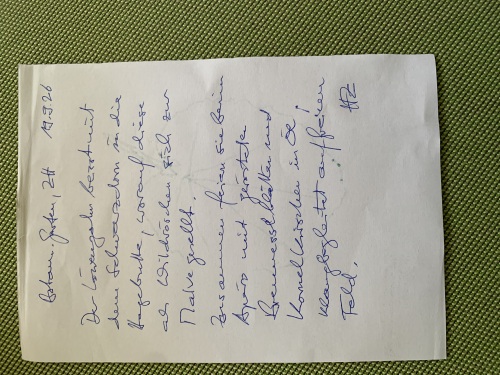 Botan. Garten, ZH 19.9.26
Der Löwenzahn beisst mit
dem Schwarzdorn in die
Hagebutte, worauf diese
als Wildröschen sich zur
Malve gesellt.
Zusammen feiern sie beim
Apéro mit gerösteten
Brennnesselblättern und
Kornelkirschen in Öl,
klangbegleitet auf freiem
Feld.
HZ